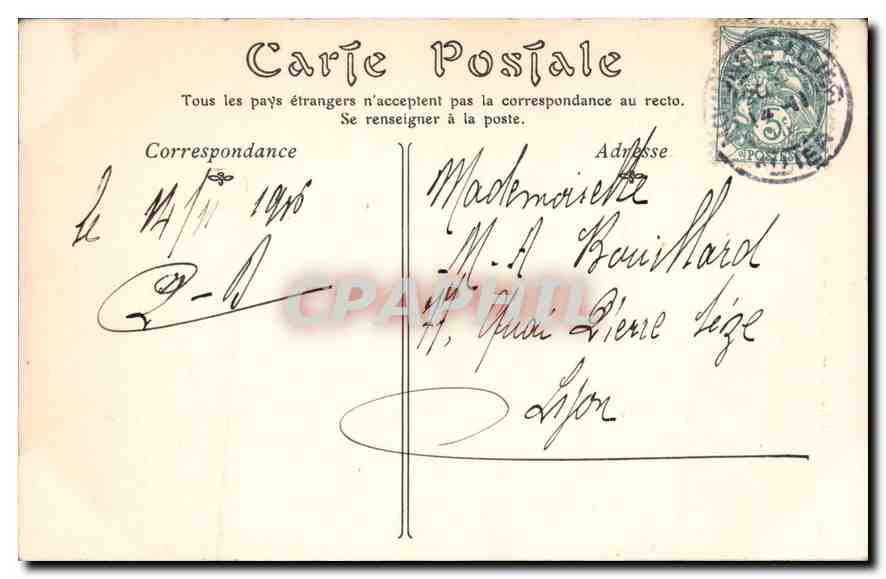 Carte Postale
Tous les pays étrangers n'acceptent pas la correspondance au recto.
Se renseigner à la poste.
Correspondance
le 14/11 1906
P-B
Adresse
Mademoiselle
M-A Bouillard
11, Quai Pierre Sèze
Lyon
5c
POSTES
CPAPHIL